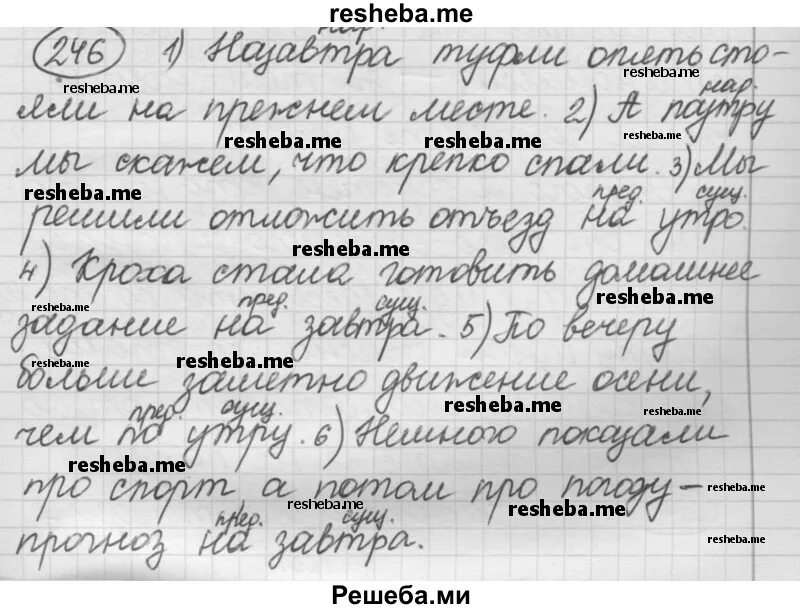 resheba.me
нар.
246 1) Назавтра туфли опять сто-
resheba.me
resheba.me
нар.
яли на прежнем месте. 2) А поутру
resheba.me resheba.me resheba.me
мы скажем, что крепко спали. 3) Мы
resheba.me
пред. сущ.
решили отложить отъезд на утро.
resheba.me
4) Кроха стала готовить домашнее
resheba.me
resheba.me
пред. сущ.
задание на завтра. 5) По вечеру
resheba.me resheba.me
больше заметно движение осени,
resheba.me
resheba.me
пред. сущ.
чем по утру. 6) Немного показали
resheba.me
про спорт, а потом про погоду –
resheba.me
resheba.me resheba.me
пред. сущ.
прогноз на завтра.
resheba.me
Решеба.ми